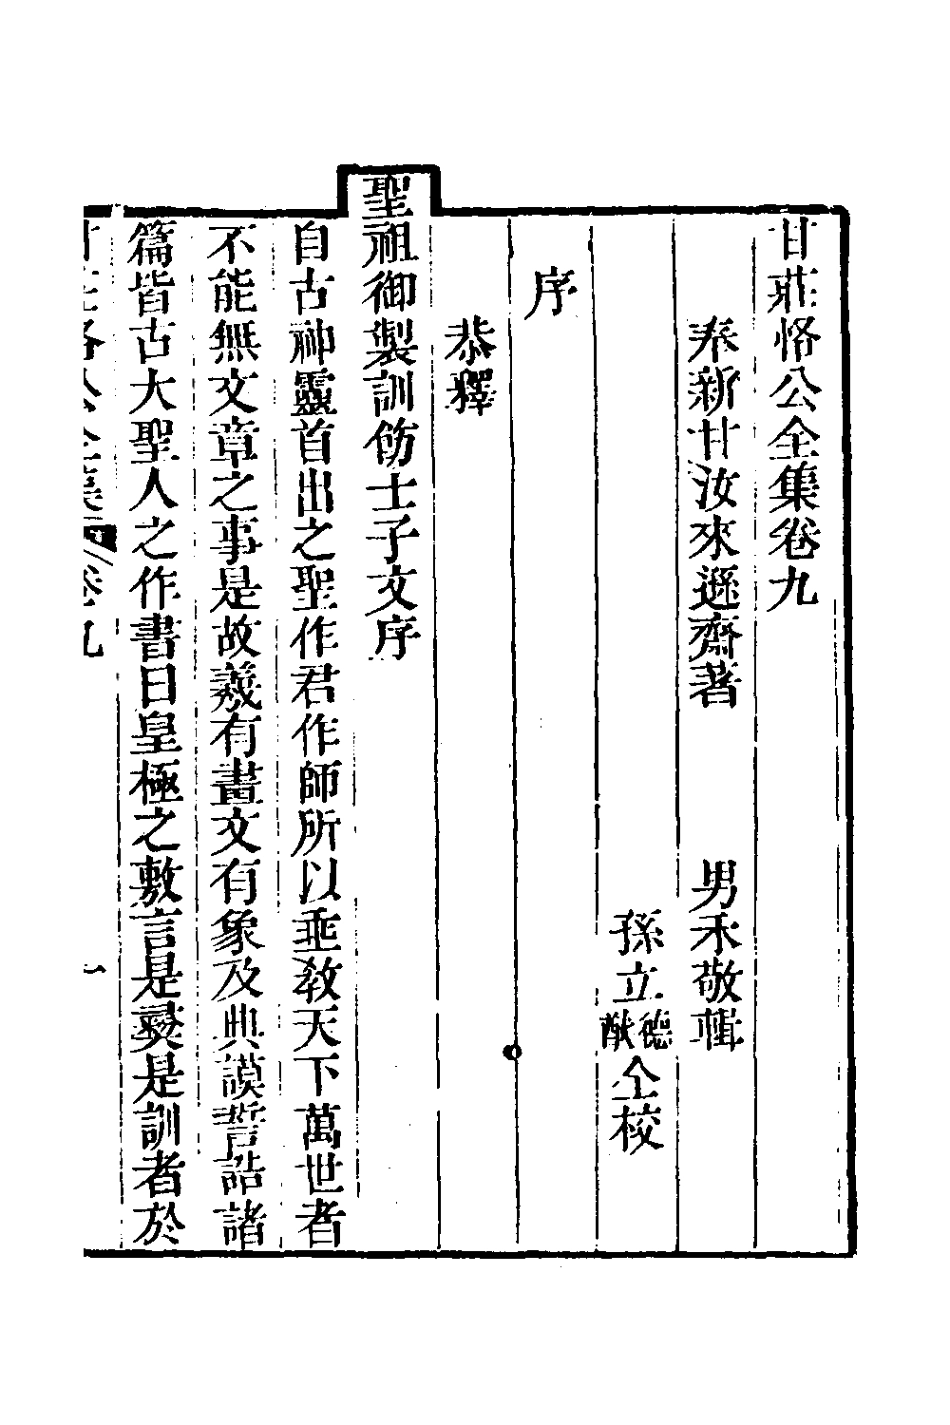 甘莊恪公全集卷九
奉新甘汝來遜齋著　男禾敬輯
孫立德猷仝校
序
恭釋
聖祖御製訓飭士子文序
自古神靈首出之聖作君作師所以垂教天下萬世者
不能無文章之事是故羲有畫文有象及典謨誓誥諸
篇皆古大聖人之作書曰皇極之敷言是彛是訓者於
甘莊恪公全集　卷九　一